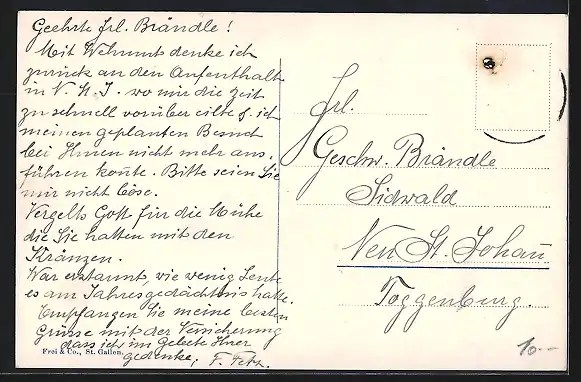 Geehrte Frl. Brändle!
Mit Wehmut denke ich
zurück an den Aufenthalt
in N. St. J. wo mir die Zeit
zu schnell vorüber eilte u. ich
meinen geplanten Besuch
bei Ihnen nicht mehr aus,
führen konte. Bitte seien Sie
mir nicht böse.
Vergelts Gott für die Mühe
die Sie hatten mit den
Kränzen.
War erstaunt, wie wenig Leute
es am Jahresgedächtnis hatte.
Empfangen Sie meine besten
Grüsse mit der Versicherung
dass ich im Gebete Ihrer
gedenke, F.
Frei & Co., St. Gallen.
Frl.
Geschw. Brändle
Sidwald
Neu St. Johann
Toggenburg.
10.--